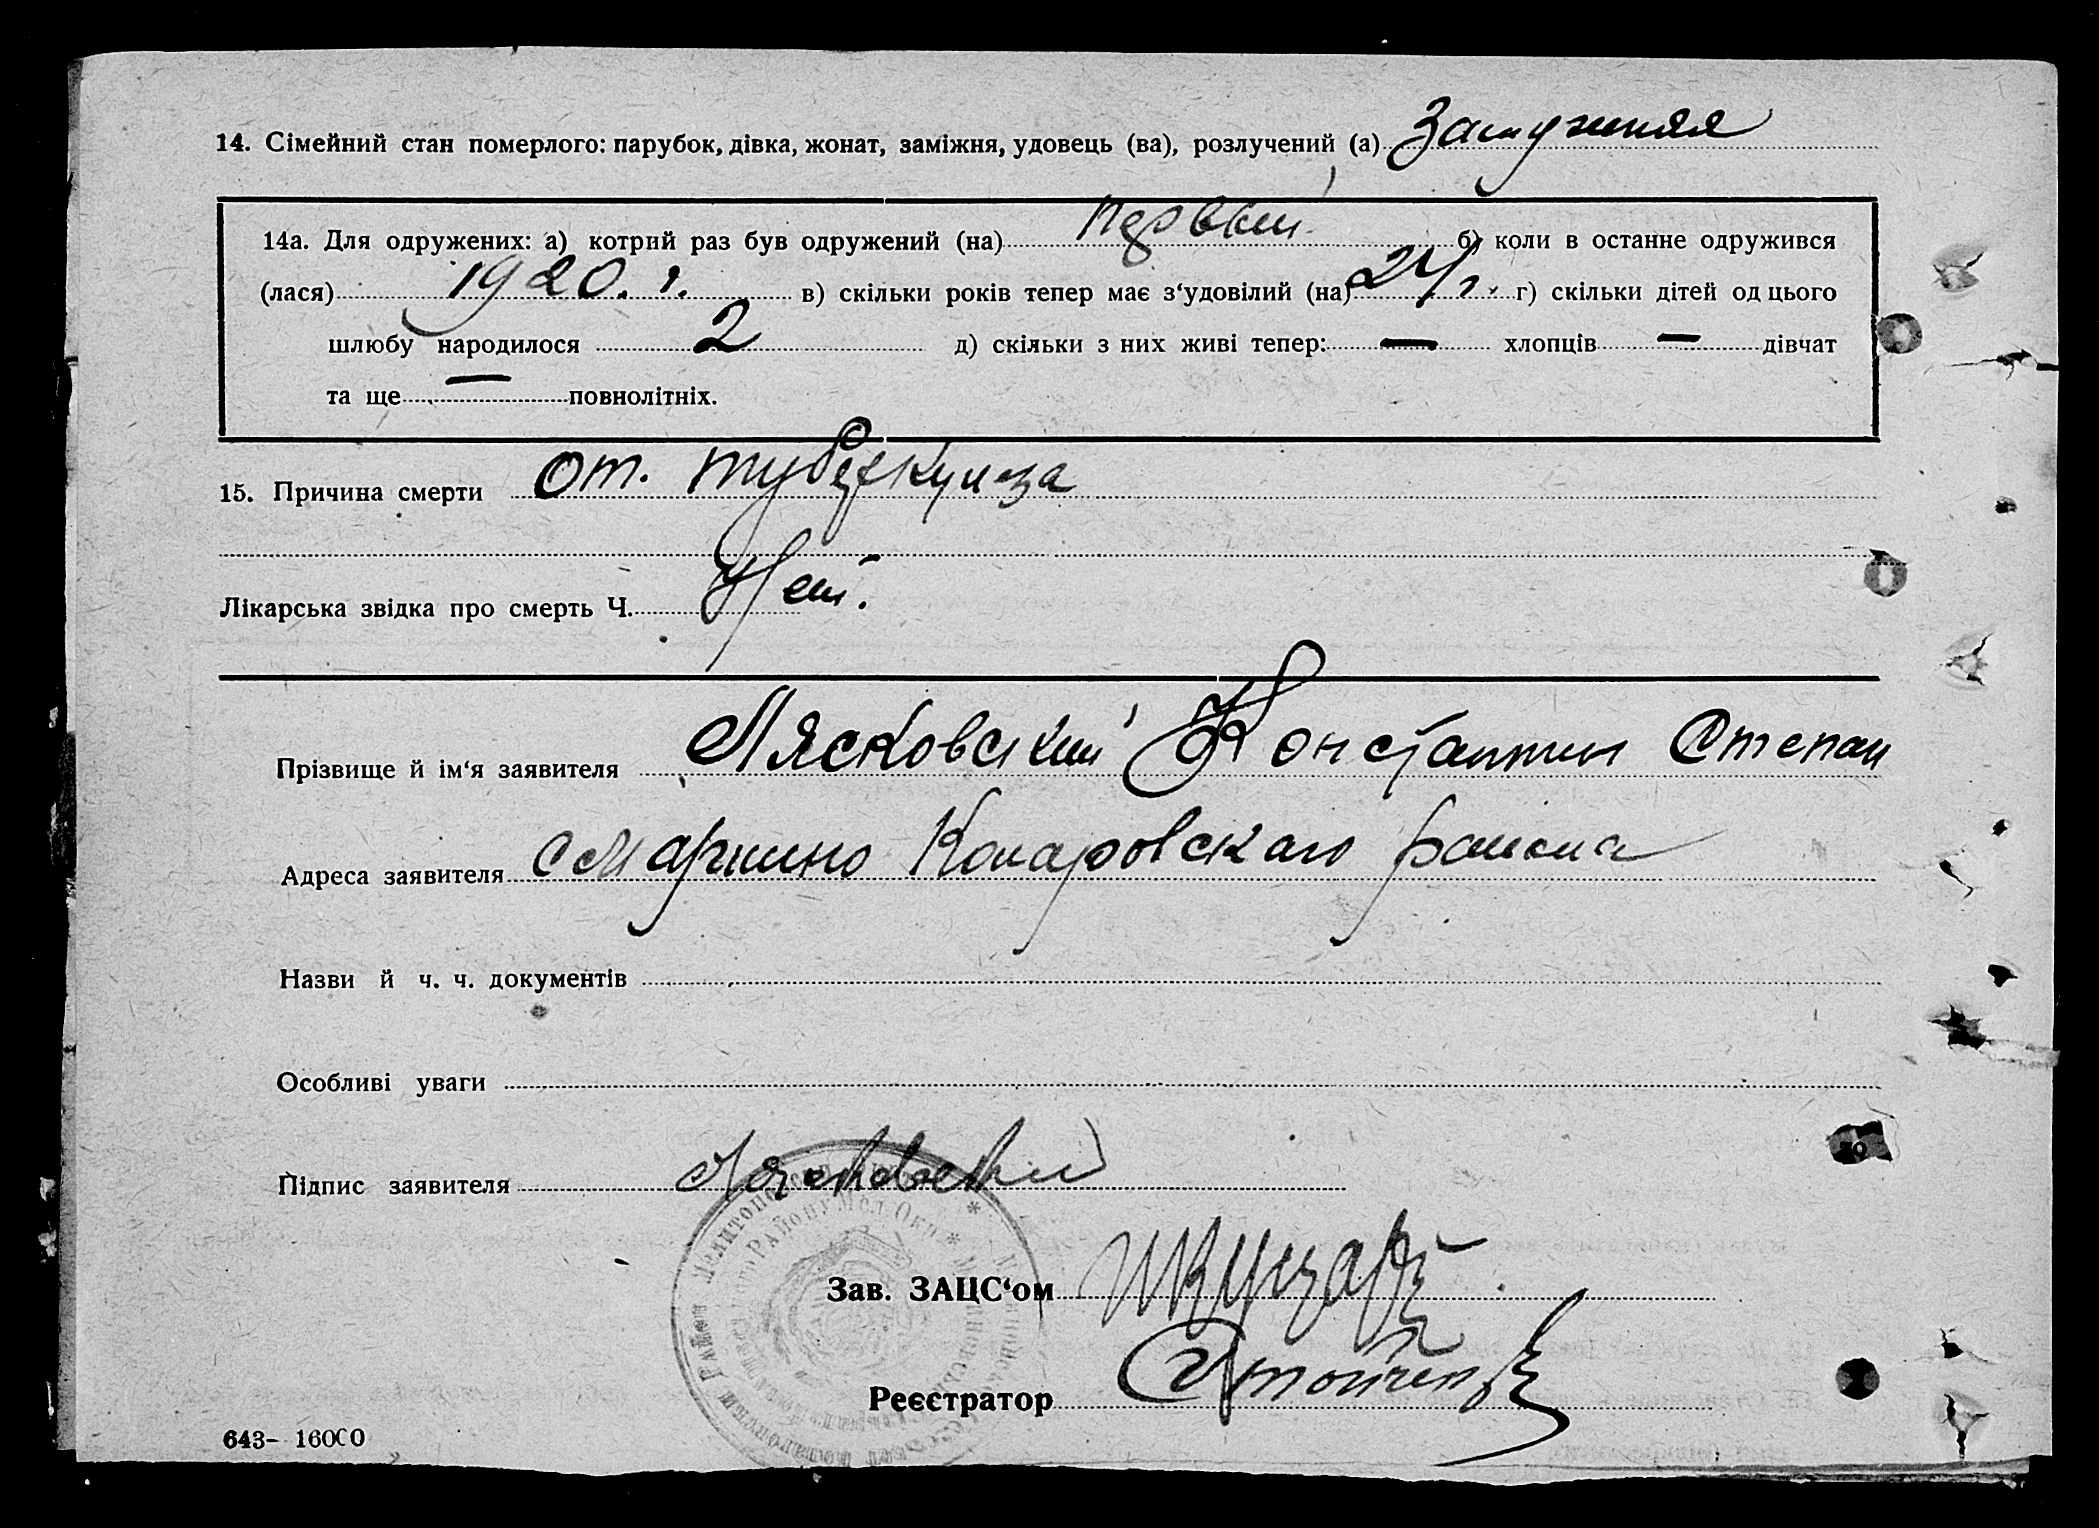 14. Сімейний стан померлого: парубок, дівка, жонат, заміжня, удовець (ва), розлучений (а) Замужняя
14а. Для одружених: а) котрий раз був одружений (на) Первый б) коли в останнє одружився
(лася) 1920. г. в) скільки років тепер має з‘удовілий (на) 24 г. г) скільки дітей од цього
шлюбу народилося 2 д) скільки з них живі тепер: — хлопців — дівчат
та ще — повнолітніх.
15. Причина смерти От. туберкулеза
Лікарська звідка про смерть Ч. Нет.
Прізвище й ім‘я заявителя Лясковский Константин Степан
Адреса заявителя с Марьино Комаровскаго района
Назви й ч. ч. документів
Особливі уваги
Підпис заявителя Лясковский
Зав. ЗАЦС‘ом
Реєстратор
643– 16000